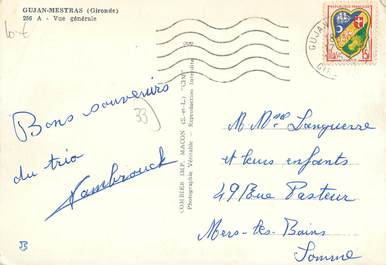 GUJAN-MESTRAS (Gironde)
256 A - Vue générale
10 €
33
Bons souvenirs
du trio
Vambrouck
COMBIER IMP. MACON (S.-et-L.) "CIM"
Photographie Véritable - Reproduction Interdite
GUJAN
M Mme Languerre
et leurs enfants
49 Rue Pasteur
Mers-les-Bains
Somme